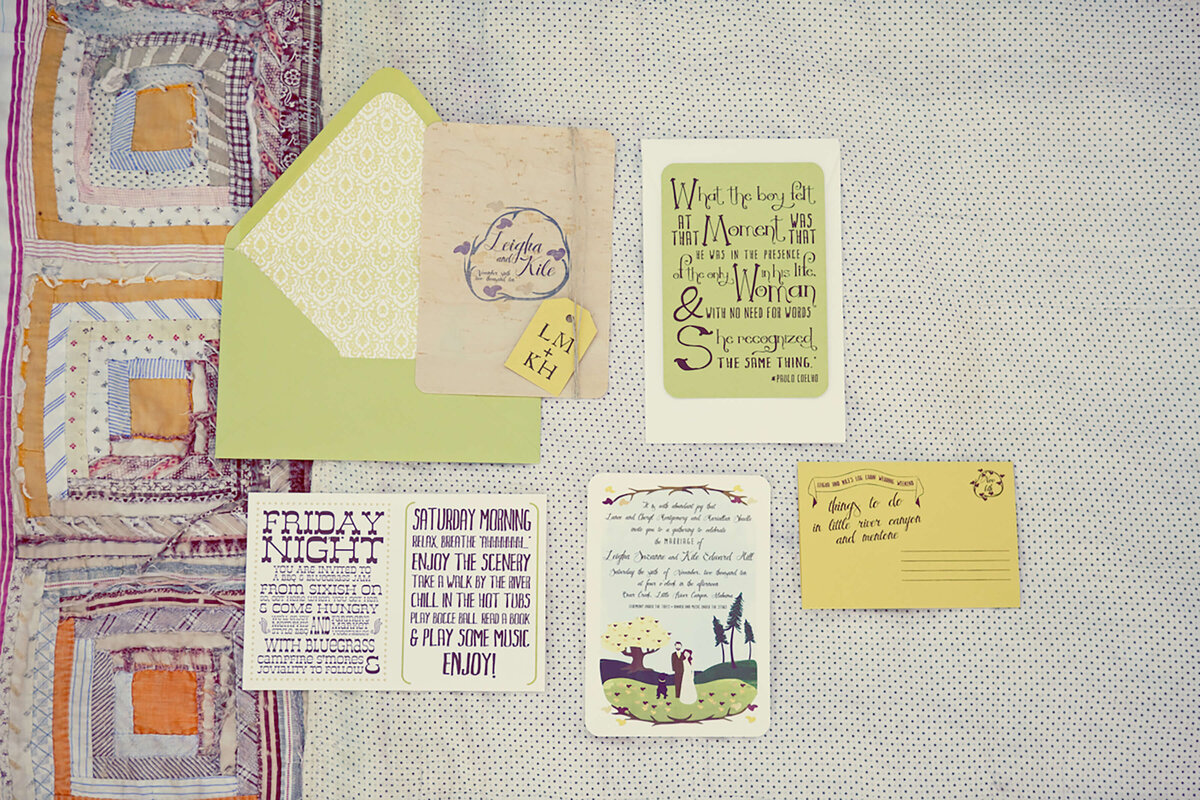 Leigha
and
Kile
November sixth
two thousand ten
LM
+
KH
What the boy felt
AT
THAT Moment WAS
THAT
HE WAS IN THE PRESENCE
of the only Woman in his life,
& WITH NO NEED FOR WORDS
She recognized
THE SAME THING."
PAULO COELHO
FRIDAY
NIGHT
YOU ARE INVITED TO
A BBQ & BLUEGRASS JAM
FROM SIXISH ON
& COME HUNGRY
AND
WITH BLUEGRASS
CAMPFIRE S'MORES &
JOVIALITY TO FOLLOW
SATURDAY MORNING
RELAX, BREATHE "AHHHHHHH..."
ENJOY THE SCENERY
TAKE A WALK BY THE RIVER
CHILL IN THE HOT TUBS
PLAY BOCCE BALL READ A BOOK
& PLAY SOME MUSIC
ENJOY!
It is with abundant joy that
Lance and Cheryl Montgomery and
invite you to a gathering to celebrate
the MARRIAGE of
Leigha Suzanne and Kile Edward Hill
Saturday the sixth of November, two thousand ten
at four o'clock in the afternoon
River Creek, Little River Canyon, Alabama
CEREMONY UNDER THE TREES • DINNER AND MUSIC UNDER THE STARS
LEIGHA AND KILE'S LOG CABIN WEDDING WEEKEND
Nov
6th
things to do
in little river canyon
and mentone